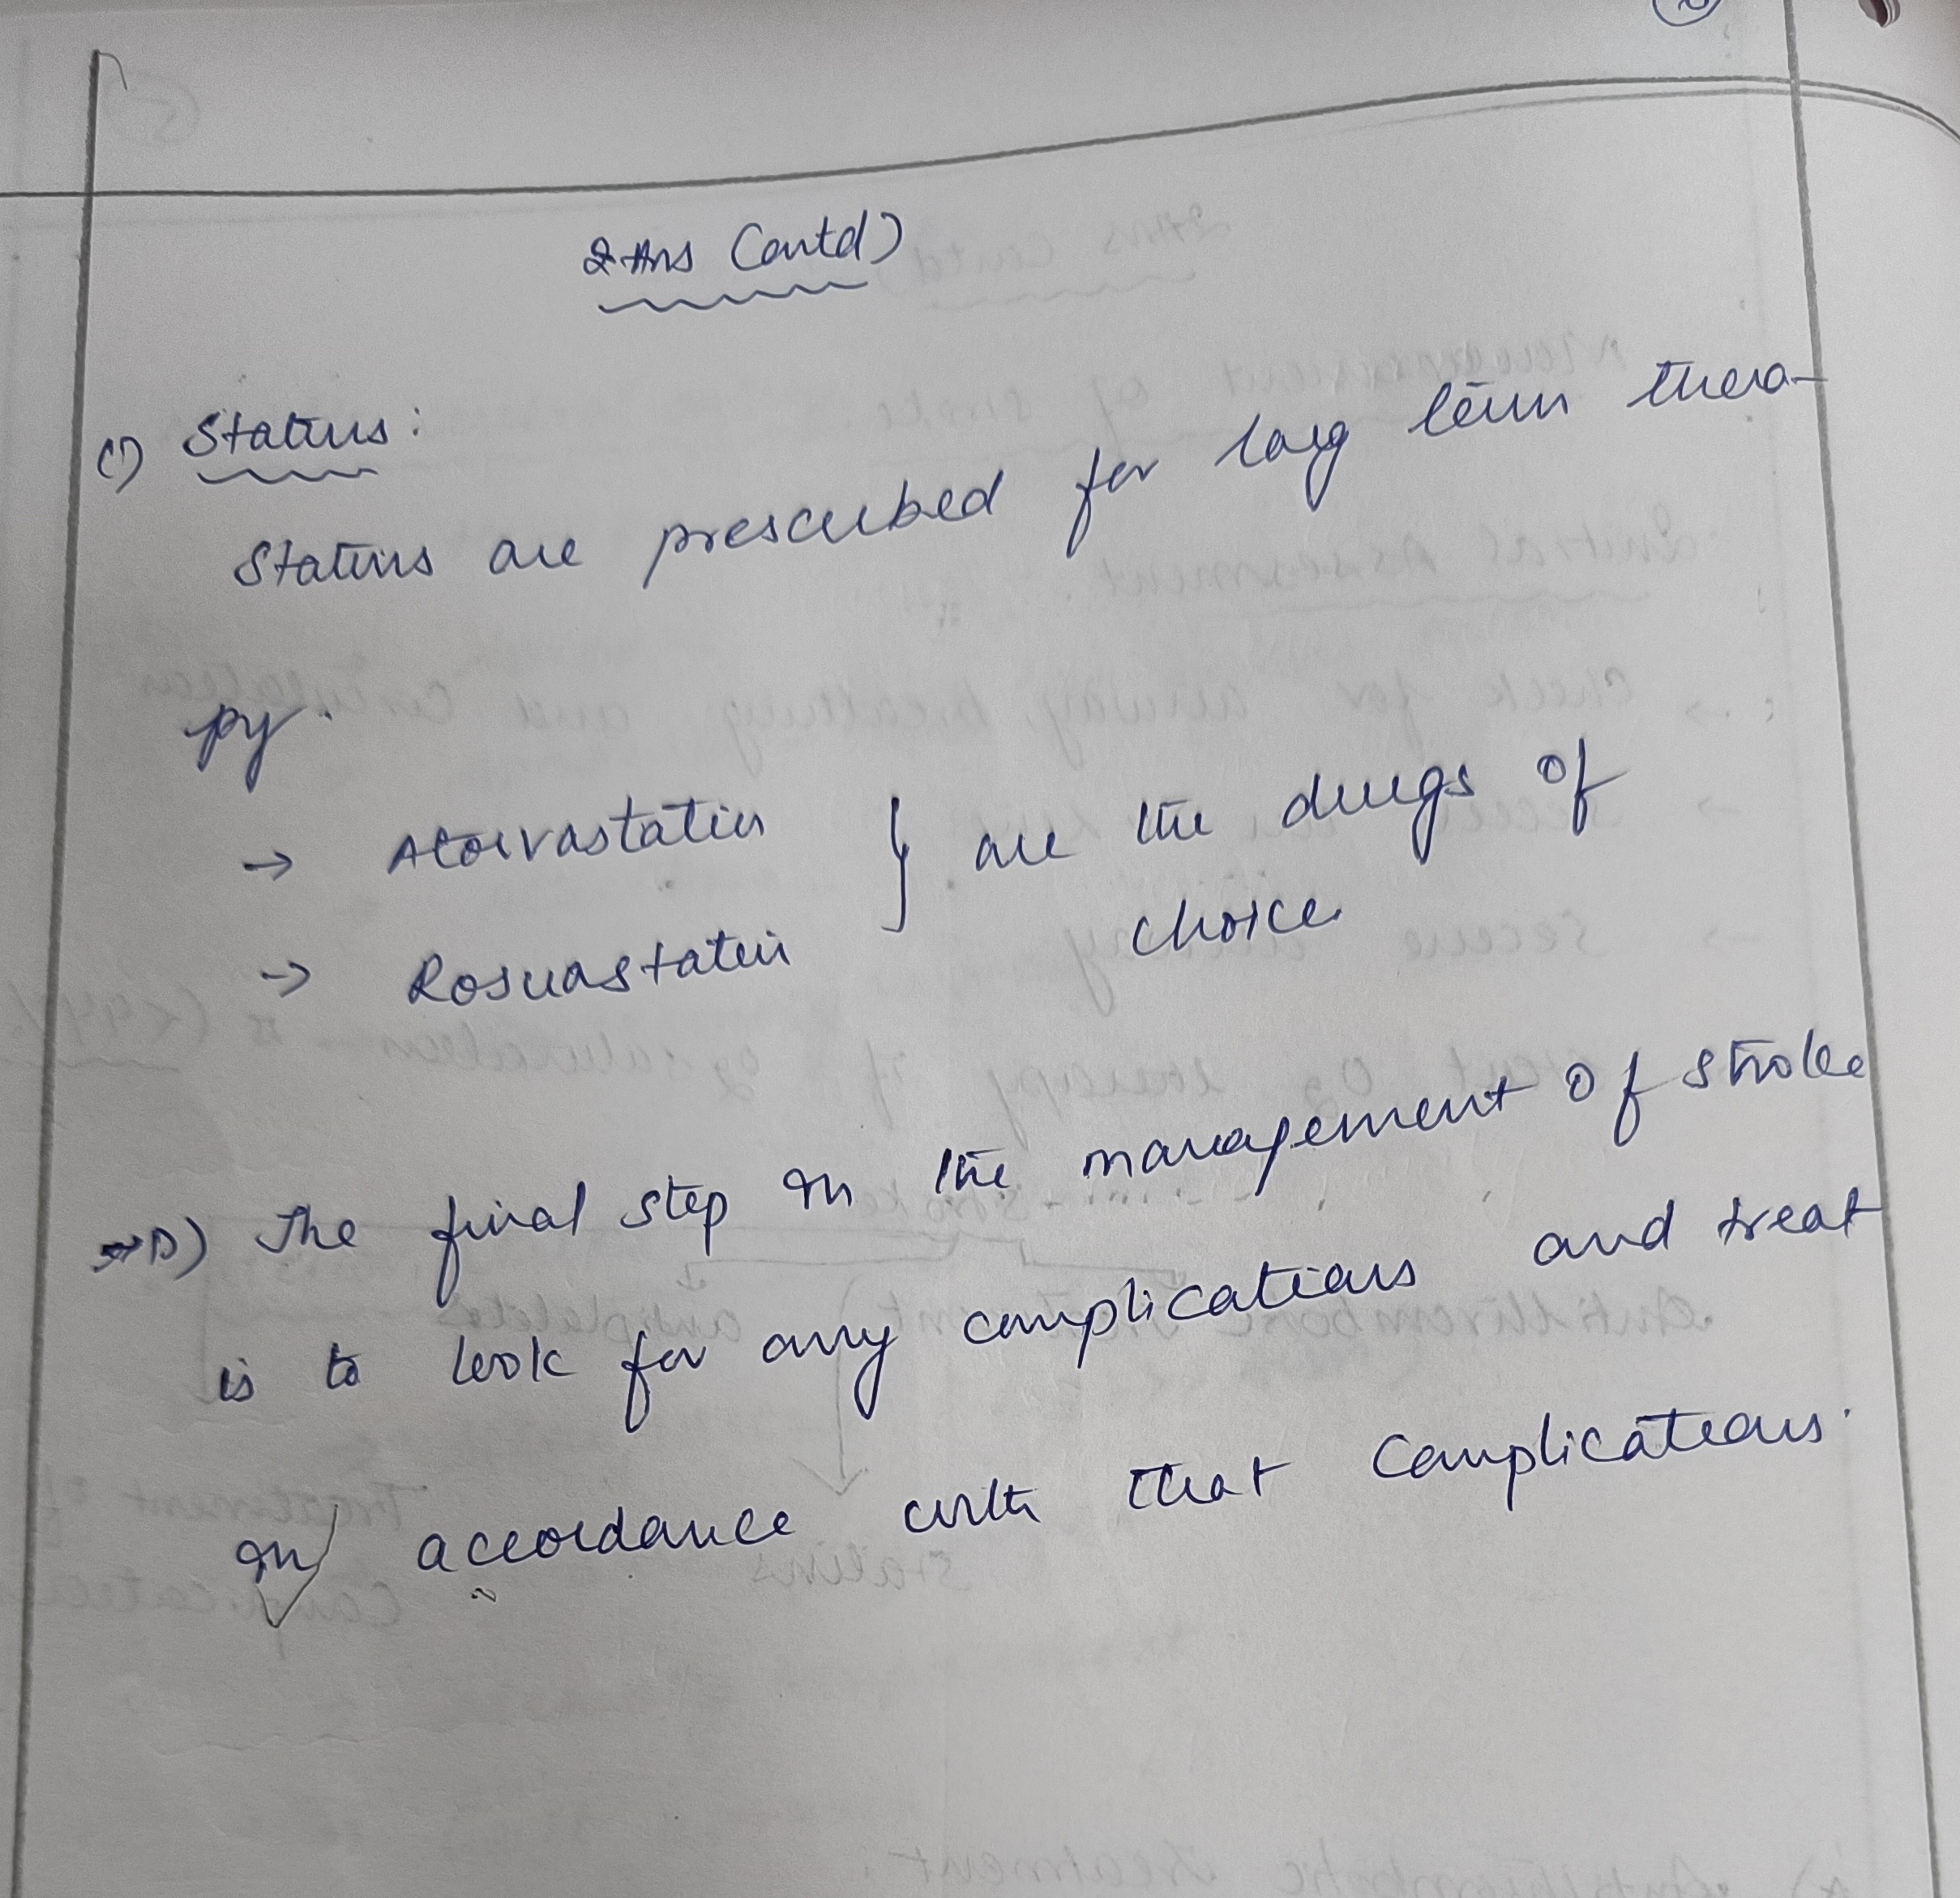 2 Ans Contd)
C) Statins:
Statins are prescribed for long term thera-
py.
→ Atorvastatin } are the drugs of
→ Rosuvastatin choice.
D) The final step in the management of stroke
is to look for any complications and treat
in accordance with that complications.